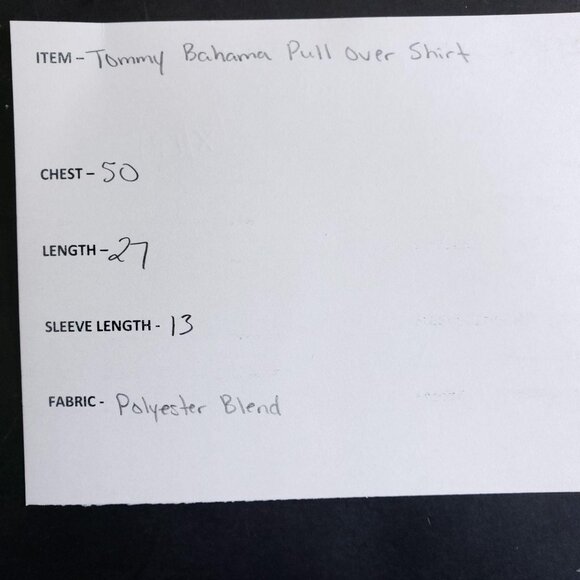 ITEM - Tommy Bahama Pull Over Shirt
CHEST - 50
LENGTH - 27
SLEEVE LENGTH - 13
FABRIC - Polyester Blend